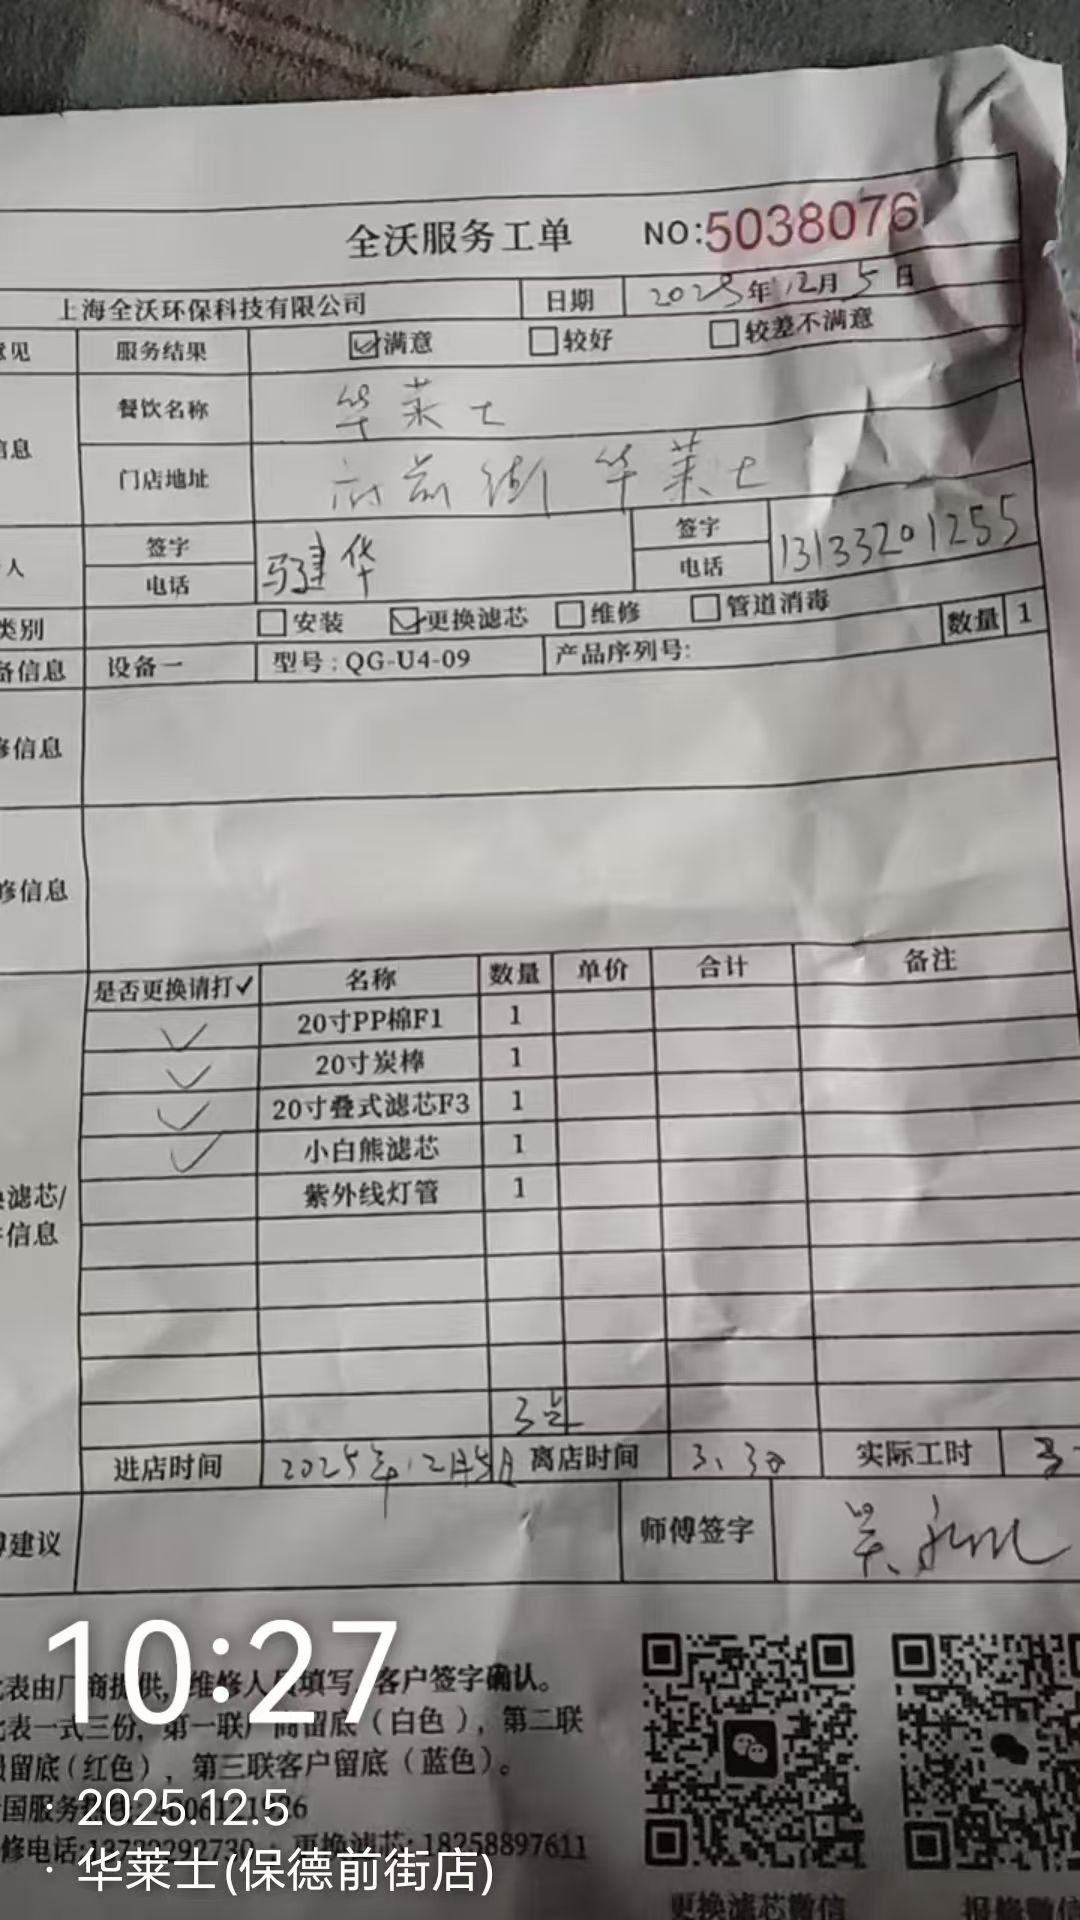 全沃服务工单 NO:5038076
上海全沃环保科技有限公司 日期 2025年12月5日
意见 服务结果 满意 较好 较差不满意
信息 餐饮名称 华莱士
门店地址 前街华莱士
人 签字 电话 建华 签字 电话 13133201255
类别 安装 更换滤芯 维修 管道消毒
备信息 设备一 型号:QG-U4-09 产品序列号: 数量 1
修信息
修信息
是否更换请打✓ 名称 数量 单价 合计 备注
✓ 20寸PP棉F1 1
✓ 20寸炭棒 1
✓ 20寸叠式滤芯F3 1
✓ 小白熊滤芯 1
紫外线灯管 1
滤芯/
信息
进店时间 2025年12月5日 3点 离店时间 3:30 实际工时
建议 师傅签字 吴
10:27
表由厂商提供,维修人员填写,客户签字确认。
表一式三份,第一联厂商留底(白色),第二联
留底(红色),第三联客户留底(蓝色)。
国服务热线:
2025.12.5
修电话: 更换滤芯:18258897611
华莱士(保德前街店)
更换滤芯微信 报修微信